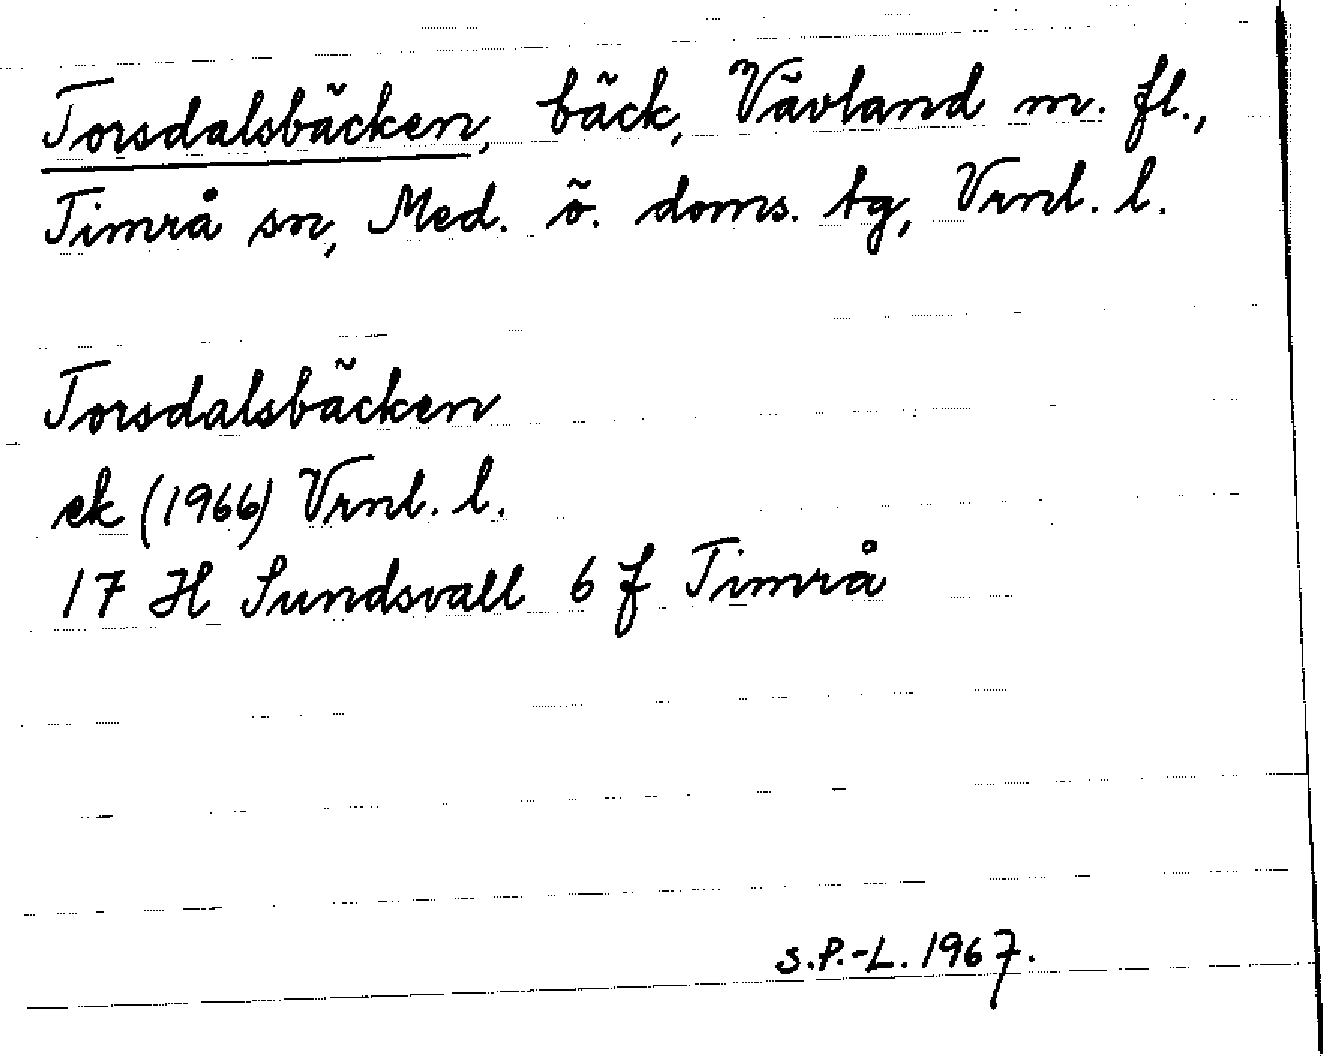 Torsdalsbäcken, bäck, Vävland m. fl.,
Timrå sn, Med. ö. doms. tg, Vrnl. l.
Torsdalsbäcken
ek (1966) Vrnl. l.
17 H Sundsvall 6 f Timrå
s.P.-L. 1967.